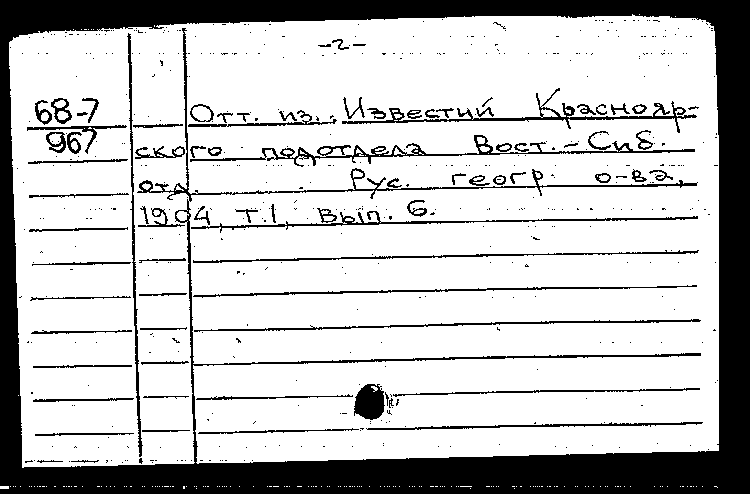 -2-
68-7
967
Отт. из. Известий Краснояр-
ского подотдела Вост.-Сиб.
отд. Рус. геогр. о-ва,
1904, т.1, вып. 6.